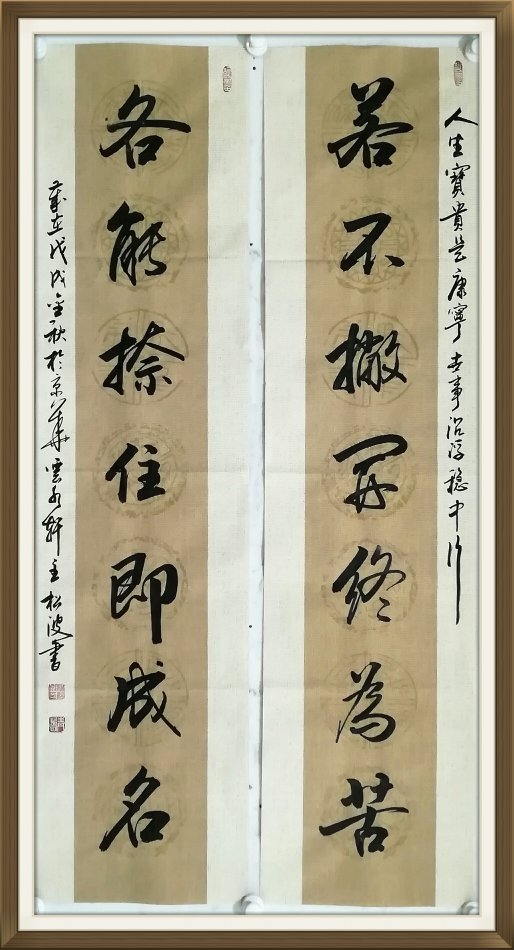 人生寶貴是康寧世事沉浮稳中行
若不撇開終為苦
各能捺住即成名
歲在戊戌金秋於京華雲水軒主松波書